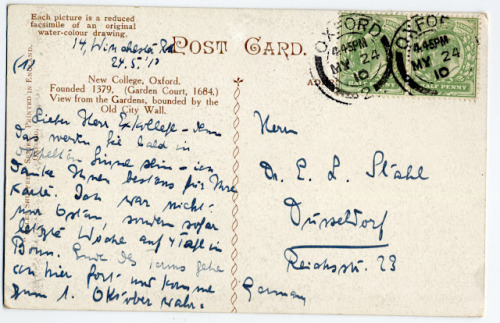 Each picture is a reduced
facsimile of an original
water-colour drawing.
POST CARD.
14, Winchester Rd
24.5.10
New College, Oxford.
Founded 1379. (Garden Court, 1684.)
View from the Gardens, bounded by the
Old City Wall.
OXFORD
4.45PM
MY 24
10
OXFO
45PM
MY 24
10
HALF PENNY
Lieber Herr
Das werden Sie bald in
Sinne sein - ich
Danke Ihnen bestens für Ihre
Karte. Ich war nicht
nur Ostern, sondern sogar
letzte Woche auf 4 Tage in
Bonn. Ende des Terms gehe
ich hier fort und komme
zum 1. Oktober
Herrn
Dr. E. L. Stahl
Düsseldorf
Reichsstr. 23
Germany